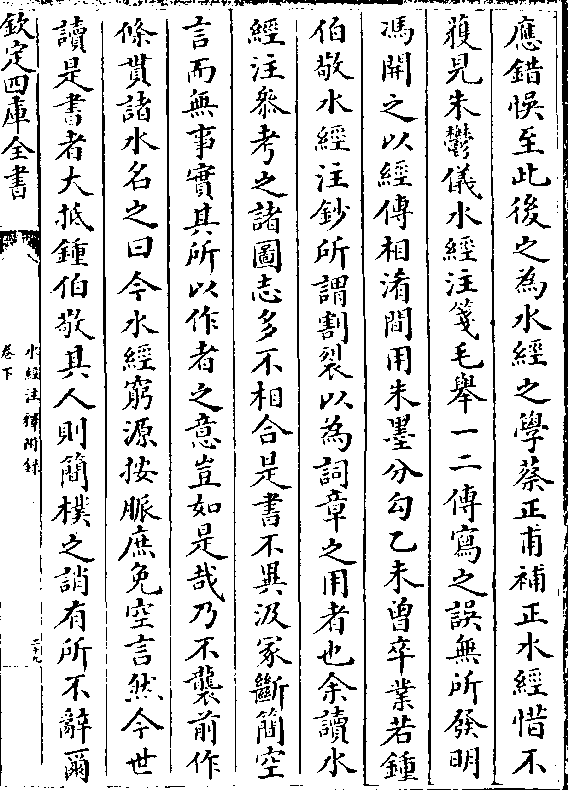 應錯悞至此後之為水經之學蔡正甫補正水經惜不
𫉬見朱鬱儀水經注箋毛舉一二傳寫之誤無所發明
馮開之以經傳相淆間用朱墨分勾乙未曾卒業若鍾
伯敬水經注鈔所謂割裂以為詞章之用者也余讀水
經注叅考之諸圖志多不相合是書不異汲冢斷簡空
言而無事實其所以作者之意豈如是哉乃不襲前作
條貫諸水名之曰今水經窮源按脈庶免空言然今世
讀是書者大抵鍾伯敬其人則簡樸之誚有所不辭爾
欽定四庫全書
水經注釋附錄
卷下
二十九